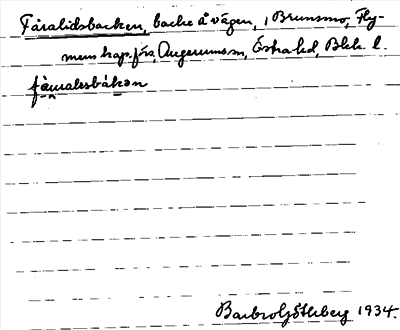 Fåralidsbacken, backe å vägen, i Brunsmo, Fly-
mens kap.förs, Augerums sn, Östra hd, Blek. l.
Barbro Götlberg 1934.